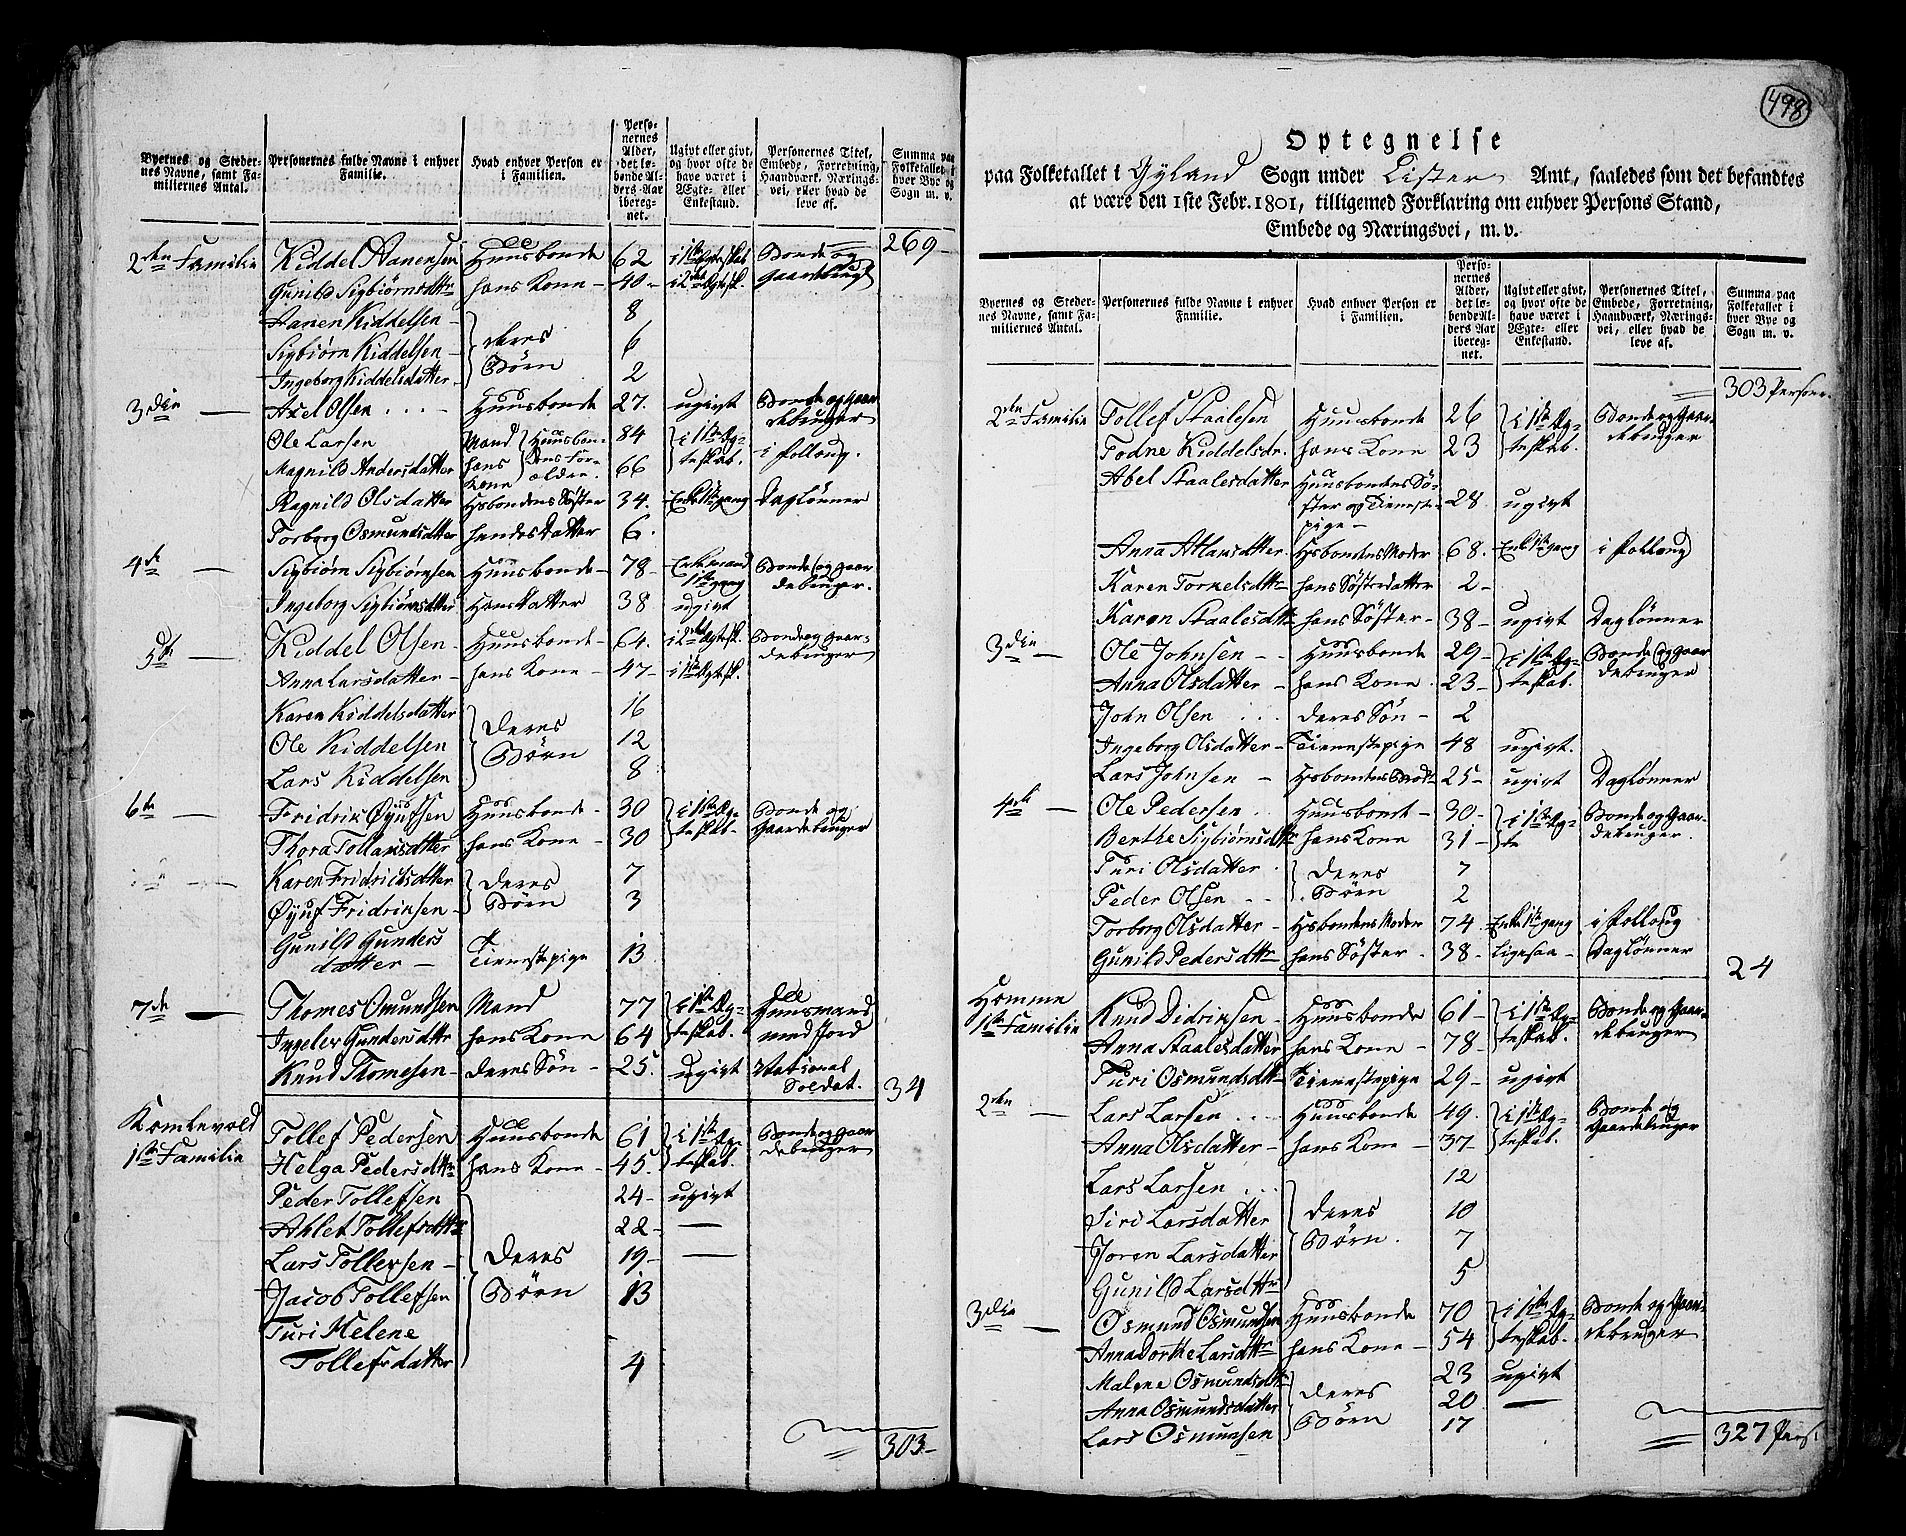 Byernes og Steder-
nes Navne, samt Fa-
miliernes Antal.
Personernes fulde Navne i enhver
Familie.
Hvad enhver Person er
i Familien.
Perso-
nernes
Alder,
det lø-
bende Al-
ders-Aar
iberegnet.
Ugivt eller givt,
og hvor ofte de
have været i
Ægte- eller
Enkestand.
Personernes Titel,
Embede, Forretning,
Haandværk, Nærings-
vei, eller hvad de
leve af.
Summa paa
Folketallet i
hver Bye og
Sogn m. v.
269
2den Familie Kiddel Hanensen Huusbonde 62 i 1ste Egteskab Bonde og
Gunild Sigbiørnsdttr hans Kone 40 i 2det Egtesk. Gaardbrugr
Hanen Kiddelsen 8
Sigbiørn Kiddelsen deres 6
Ingeborg Kiddelsdatter Børn 2
3die — Axel Olsen Huusbonde 27. ugivt Bonde og Gaar
debruger
Ole Larsen Mand Huusbon- 84 i 1ste Eg-
Magnild Andersdatter hans Kone dens For- ælder. 66 teskab. i Follaug.
Ragnild Olsdatter Hsbondens Søster 34. Enke 1ste gang Daglønner
Torborg Osmundsdatter hendes Datter 6.
4de — Sigbiørn Sigbiørnsen Huusbonde 78 Enkemand Bonde og Gaar
1ste gang debruger.
Ingeborg Sigbiørnsdatter hans Datter 38 ugivt
5te — Kiddel Olsen Huusbonde 64. i 2det Egtesk. Bonde og Gaar-
debruger
Anna Larsdatter hans Kone 47 i 1ste Egtesk.
Karen Kiddelsdatter 16
Ole Kiddelsen deres Børn 12
Lars Kiddelsen 8
6te — Fridrik Øyufsen Huusbonde 30 i 1ste Eg- Bonde og
Thora Tollansdatter hans Kone 30 teskab. Gaardebruger
Karen Fridrichsdatter deres 7
Øyuf Fridriksen Børn 3
Gunild Gunders
datter Tienestepige 13
7de — Thomes Omundsen Mand 77 i 1ste Eg- Huusmand
Ingeler Gundersdattr hans Kone 64 teskab. med Jord
Knud Thomesen deres Søn 25. ugivt National
Soldat. 34
Komlevold
1ste Familie Tollef Pedersen Huusbonde 61 i 1ste Eg- Bonde og Gaar
Helga Pedersdttr hans Kone 45. teskab. debruger
Peder Tollefsen 24 ugivt
Ahlet Tollefsdattr 22 —
Lars Tollefsen deres 19 —
Jacob Tollefsen Børn 13
Turi Helene
Tollefsdatter 4
303
498
Optegnelse
paa Folketallet i Gyland Sogn under Lister Amt, saaledes som det befandtes
at være den 1ste Febr. 1801, tilligemed Forklaring om enhver Persons Stand,
Embede og Næringsvei, m. v.
Byernes og Steder-
nes Navne, samt Fa-
miliernes Antal.
Personernes fulde Navne i enhver
Familie.
Hvad enhver Person er
i Familien.
Perso-
nernes
Alder,
det lø-
bende Al-
ders Aar
ibereg-
net.
Ugivt eller givt,
og hvor ofte de
have været i
Ægte- eller
Enkestand.
Personernes Titel,
Embede, Forretning,
Haandværk, Nærings-
vei, eller hvad de
leve af.
Summa paa
Folketallet i
hver Bye og
Sogn m. v.
303 Personer
2den Familie Tollef Staalesen Huusbonde 26 i 1ste Eg- Bonde og Gaar
Todne Kiddelsdr. hans Kone 23 teskab. debruger
Abel Staalesdatter Huusbondens Sø-
ster og Tieneste- 28. ugivt
pige
Anna Atlansdatter Hsbondens Moder 68. Enke 1ste gang i Follaug
Karen Torkelsdttr hans Søsterdatter 2
Karen Staalesdttr hans Søster 38 ugivt Daglønner
3die — Ole Johnsen Huusbonde 29 i 1ste Eg- Bonde og Gaar
Anna Olsdatter hans Kone 23 teskab. debruger
John Olsen deres Søn 2
Ingeborg Olsdatter Tienestepige 48 ugivt.
Lars Johnsen Hsbondens Brodr 25 ugivt Daglønner
4de — Ole Pedersen Huusbond 30 i 1ste Eg- Bonde og Gaar-
Berthe Sigbiørnsdttr hans Kone 31 te debruger.
Turi Olsdatter deres 7
Peder Olsen Børn 2
Torborg Olsdatter Hsbondens Moder 74. Enke 1ste gang i Follaug
Gunild Pedersdttr hans Søster 38 ligesaa Daglønner
24
Homme
1ste Familie Knud Didriksen Huusbonde 61 i 1ste Eg- Bonde og Gaar
Anna Staalesdatter hans Kone 78 teskab. debruger
Turi Osmundsdttr Tienestepige 29 ugivt
2den — Lars Larsen Huusbonde 49. i 1ste Eg- Bonde og
Anna Olsdatter hans Kone 37 teskab. Gaardebruger
Lars Larsen 12
Siri Larsdatter deres 10
Joren Larsdatter Børn. 7
Gunild Larsdttr 5
3die — Osmund Osmundsen Huusbonde 70 i 1ste Eg- Bonde og Gaar-
Anna Dorthe Larsdttr hans Kone 54 teskab. debruger
Malene Osmundsdttr 23 ugivt
Anna Osmundsdatter deres 20 —
Lars Osmundsen Børn 17
327 Pers: